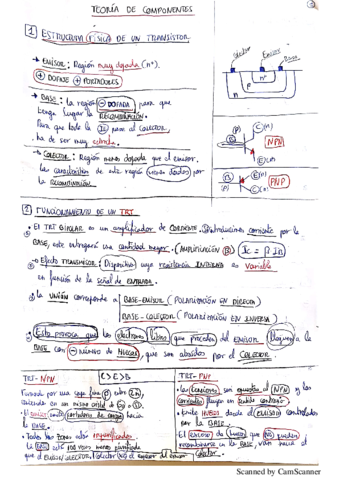 TEORÍA DE COMPONENTES
1 ESTRUCTURA FÍSICA DE UN TRANSISTOR
→ EMISOR: Región muy dopada (n+).
+ DOPAJE + PORTADORES
→ BASE: La región - DOPADA, para que
tenga lugar la RECOMBINACIÓN.
Para que todo la Ic pase al COLECTOR
ha de ser muy estrecha.
→ COLECTOR: Región menos dopada que el emisor.
Las características de esta región vienen dados por
la RECOMBINACIÓN.
Colector Emisor Base
n+
P
n
C(n)
NPN
E(n)
PNP
2 FUNCIONAMIENTO DE UN TRT
El TRT BIPOLAR es un amplificador de CORRIENTE. Si introducimos corriente por la
BASE, este entregará una cantidad mayor. (AMPLIFICACIÓN β) Ic = β IB
Efecto TRANSISTOR: Dispositivo cuya resistencia INTERNA es variable
en función de la señal de ENTRADA.
la UNIÓN corresponde a BASE-EMISOR (POLARIZACIÓN EN DIRECTA)
BASE-COLECTOR (POLARIZACIÓN EN INVERSA)
que los electrones libres que proceden del EMISOR la
BASE con - número de HUECOS, que son atraídos por el COLECTOR
TRT-NPN C>E>B
Formado por una capa fina P entre 2n,
contenido en un mismo cristal de
El emisor emite portadores de carga hacia
la BASE.
Todas las zonas están
La BASE está 100 veces menos
que el EMISOR/COLECTOR,
TRT-PNP
las tensiones son opuestas al NPN y las
corrientes fluyen en sentido contrario
Emite HUECOS desde el EMISOR controlados
por la BASE.
El exceso de huecos que NO pueden
recombinarse en la BASE van hacia el
colector.
Scanned by CamScanner